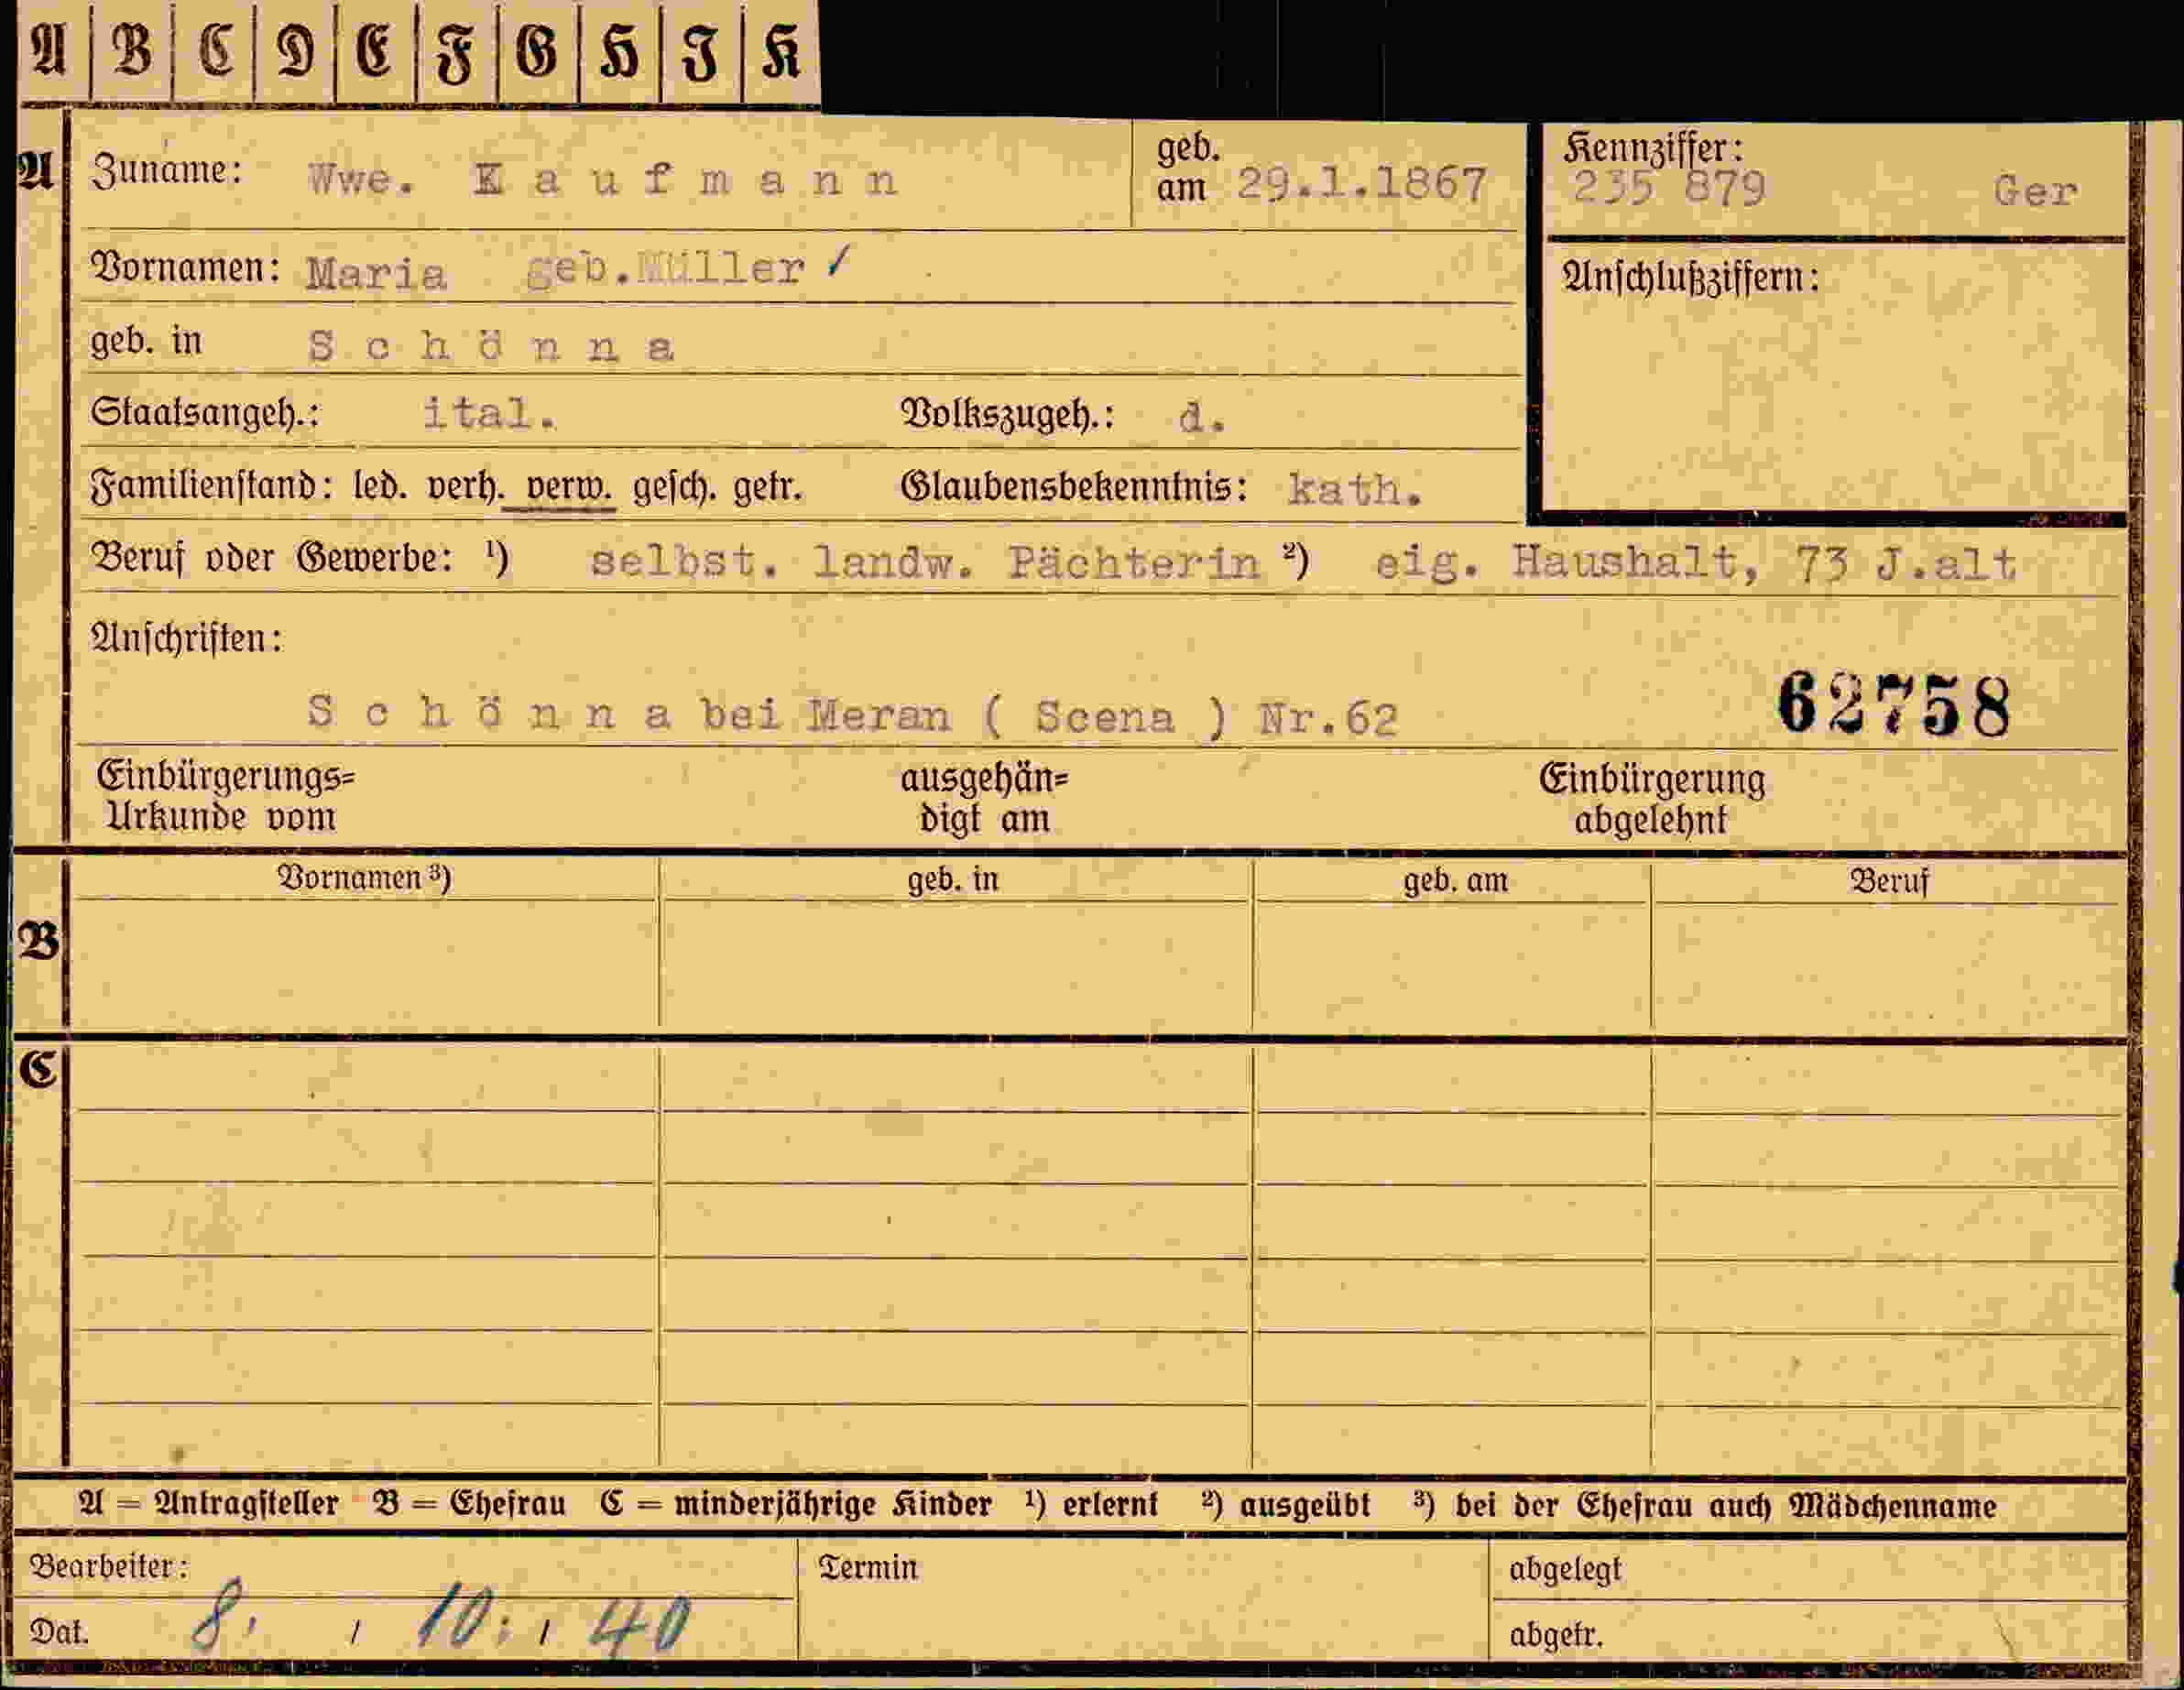 A B C D E F G H J K
A Zuname: Wwe. K a u f m a n n geb. am 29.1.1867 Kennziffer: 235 879 Ger
Vornamen: Maria geb. Müller /
Anschlußziffern:
geb. in S c h ö n n a
Staatsangeh.: ital. Volkszugeh.: d.
Familienstand: led. verh. verw. gesch. getr. Glaubensbekenntnis: kath.
Beruf oder Gewerbe: ¹) selbst. landw. Pächterin ²) eig. Haushalt, 73 J.alt
Anschriften:
S c h ö n n a bei Meran ( Scena ) Nr.62 62758
Einbürgerungs= ausgehän= Einbürgerung
Urkunde vom digt am abgelehnt
Vornamen ³) geb. in geb. am Beruf
B
C
A = Antragsteller B = Ehefrau C = minderjährige Kinder ¹) erlernt ²) ausgeübt ³) bei der Ehefrau auch Mädchenname
Bearbeiter: Termin abgelegt
Dat. 8. / 10. / 40 abgetr.